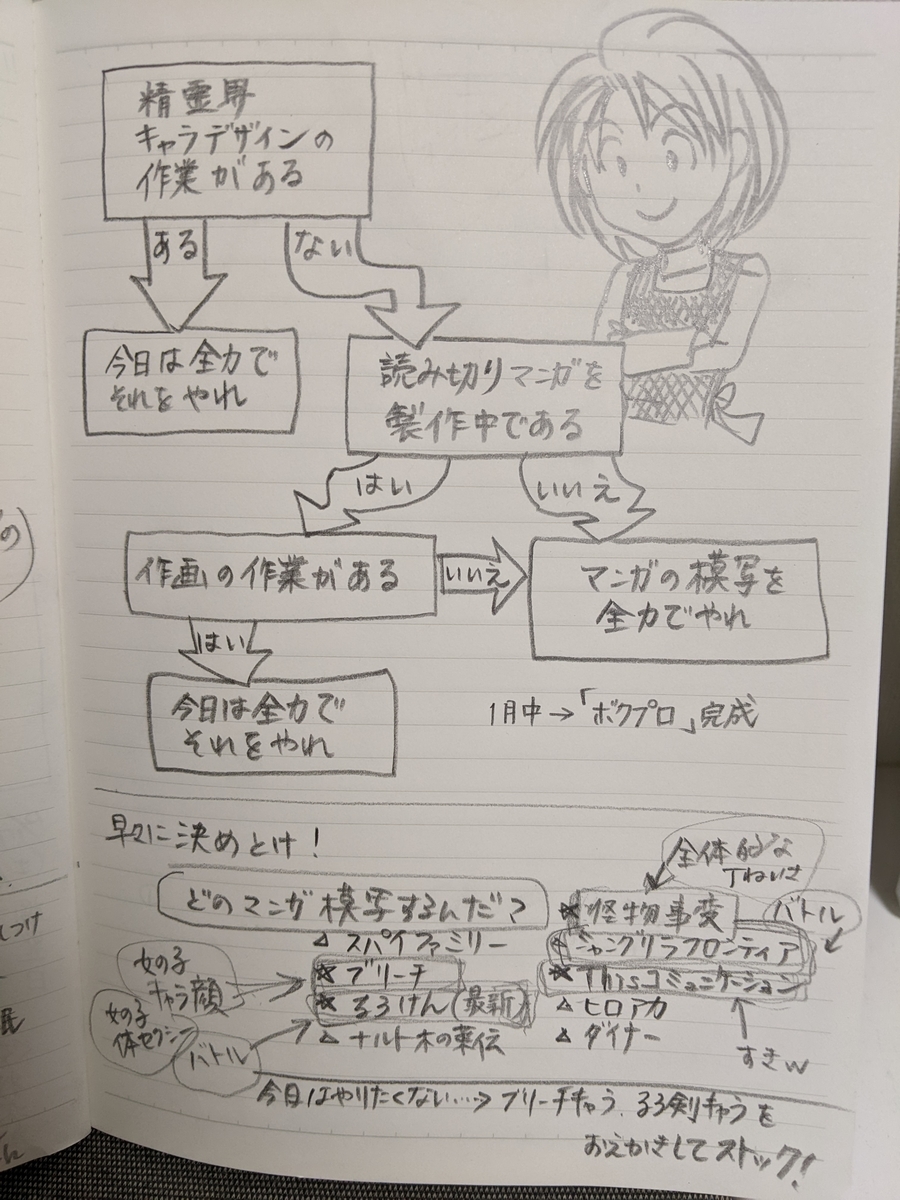 精霊界
キャラデザインの
作業がある
ある
ない
今日は全力で
それをやれ
読み切りマンガを
製作中である
はい
いいえ
作画の作業がある
いいえ
マンガの模写を
全力でやれ
はい
今日は全力で
それをやれ
1月中→「ボクプロ」完成
早々に決めとけ!
全体的な
丁ねいさ
どのマンガ模写するんだ?
△ スパイファミリー
☆ ブリーチ
☆ るろけん(最新)
△ ナルト木の葉伝
☆ 怪物事変
シャングリラフロンティア
☆ Thisコミュニケーション
△ ヒロアカ
△ ダイナー
バトル
女の子
キャラ顔
女の子
体セクシー
バトル
すきw
今日はやりたくない…→ブリーチキャラ、るろ剣キャラを
おえかきしてストック!
の
しつけ
民